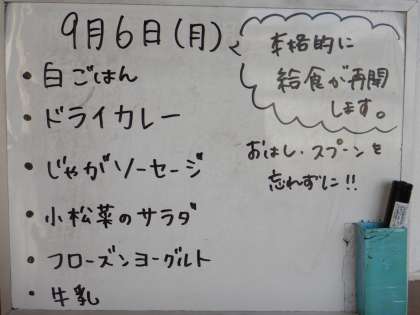 9月6日(月)
・白ごはん
・ドライカレー
・じゃがソーセージ
・小松菜のサラダ
・フローズンヨーグルト
・牛乳
本格的に
給食が再開
します。
おはし・スプーンを
忘れずに!!